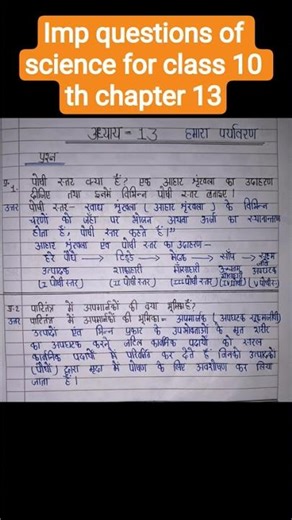 Imp questions of
science for class 10
th chapter 13
अध्याय - 13 हमारा पर्यावरण
प्रश्न
प्र-1. पोषी स्तर क्या है? एक आहार श्रृंखला का उदाहरण
दीजिए तथा इसमें विभिन्न पोषी स्तर बताइए।
उत्तर पोषी स्तर- खाद्य श्रृंखला (आहार श्रृंखला) के विभिन्न
चरणों को जहां पर भोजन अथवा ऊर्जा का स्थानान्तरण
होता है, पोषी स्तर कहते हैं।"
आहार श्रृंखला एवं पोषी स्तर का उदाहरण-
हरे पौधे → टिड्डे → मेढक → साँप → सूक्ष्म जीव
उत्पादक शाकाहारी मांसाहारी उच्चतम अपघटक
(I पोषी स्तर) (II पोषी स्तर) (III पोषी स्तर) (IV पोषी स्तर) (V पोषी स्तर)
प्र-2 पारितंत्र में अपमार्जकों की क्या भूमिका है?
उत्तर पारितंत्र में अपमार्जकों की भूमिका - अपमार्जक (अपघटक सूक्ष्मजीवी)
उत्पादकों एवं भिन्न प्रकार के उपभोक्ताओं के मृत शरीर
का अपघटन करके जटिल कार्बनिक पदार्थों को सरल
कार्बनिक पदार्थों में परिवर्तित कर देते हैं जिनको उत्पादकों
(पौधों) द्वारा मृदा में पोषण के लिए अवशोषण कर लिया
जाता है।